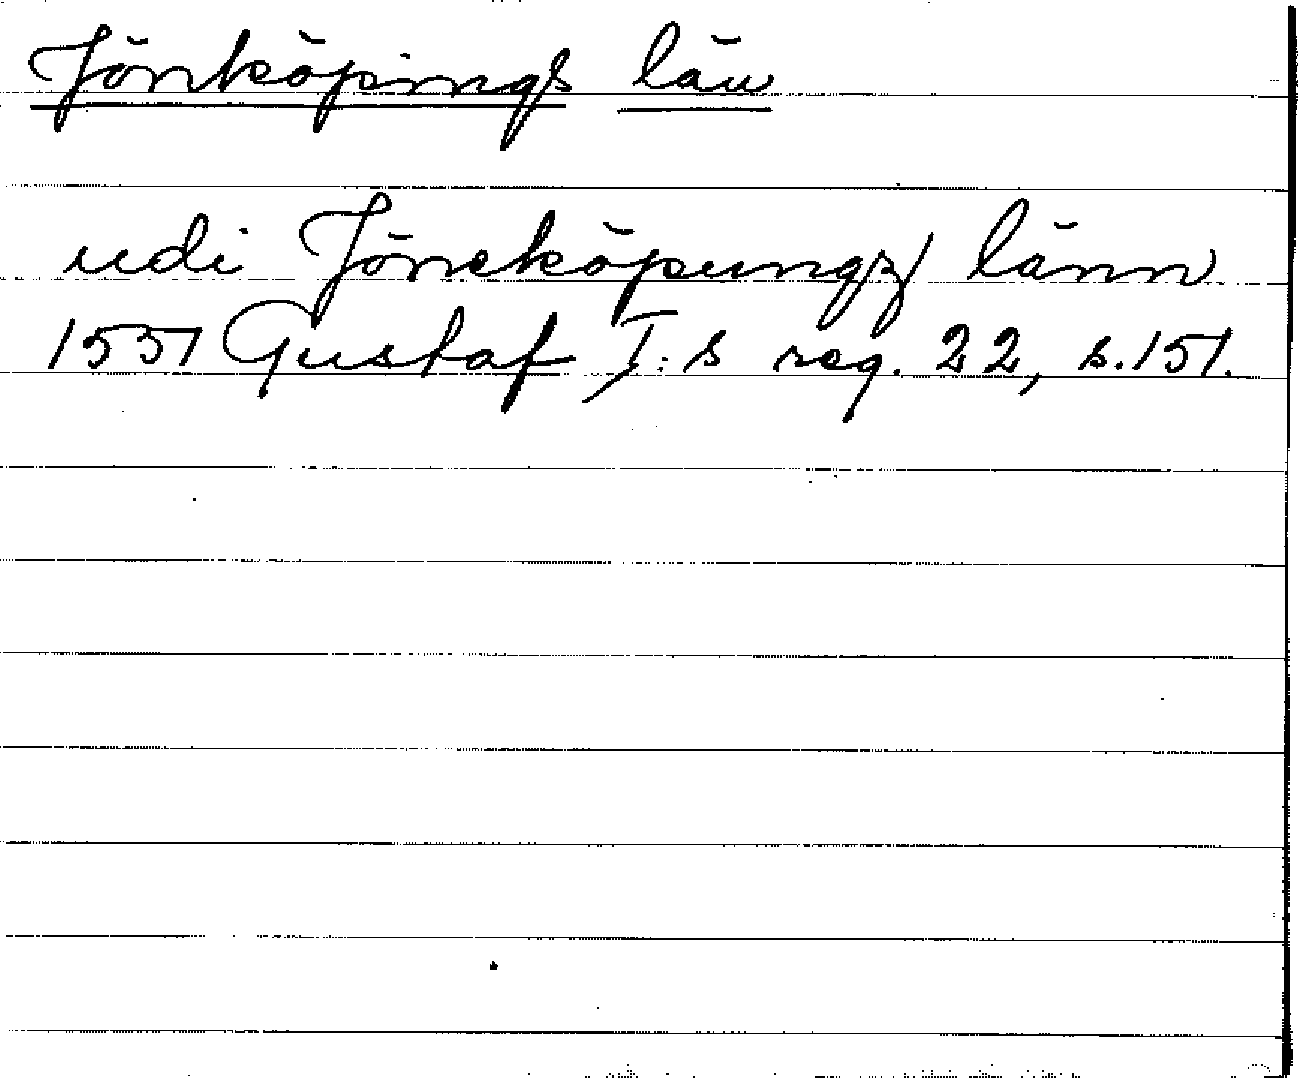 Jönköpings län
udi Jöneköpungz län
1551 Gustaf I:s reg. 22, s.151.